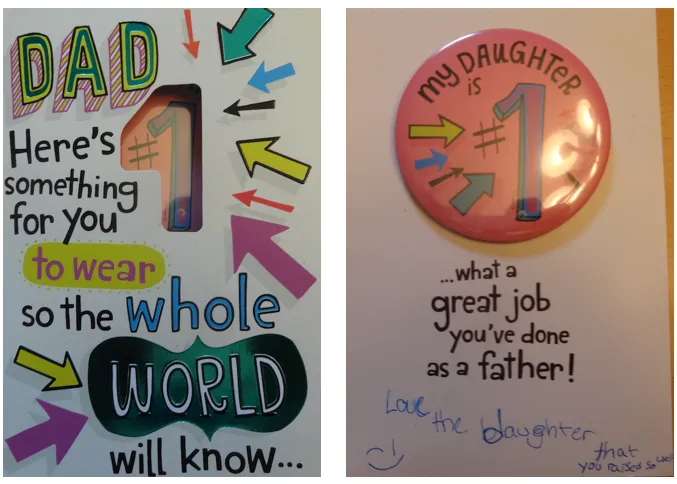 DAD
#1
Here's
something
for you
to wear
so the whole
WORLD
will know...
my DAUGHTER
is
#1
...what a
great job
you've done
as a father!
Love
the daughter
that
you raised so well